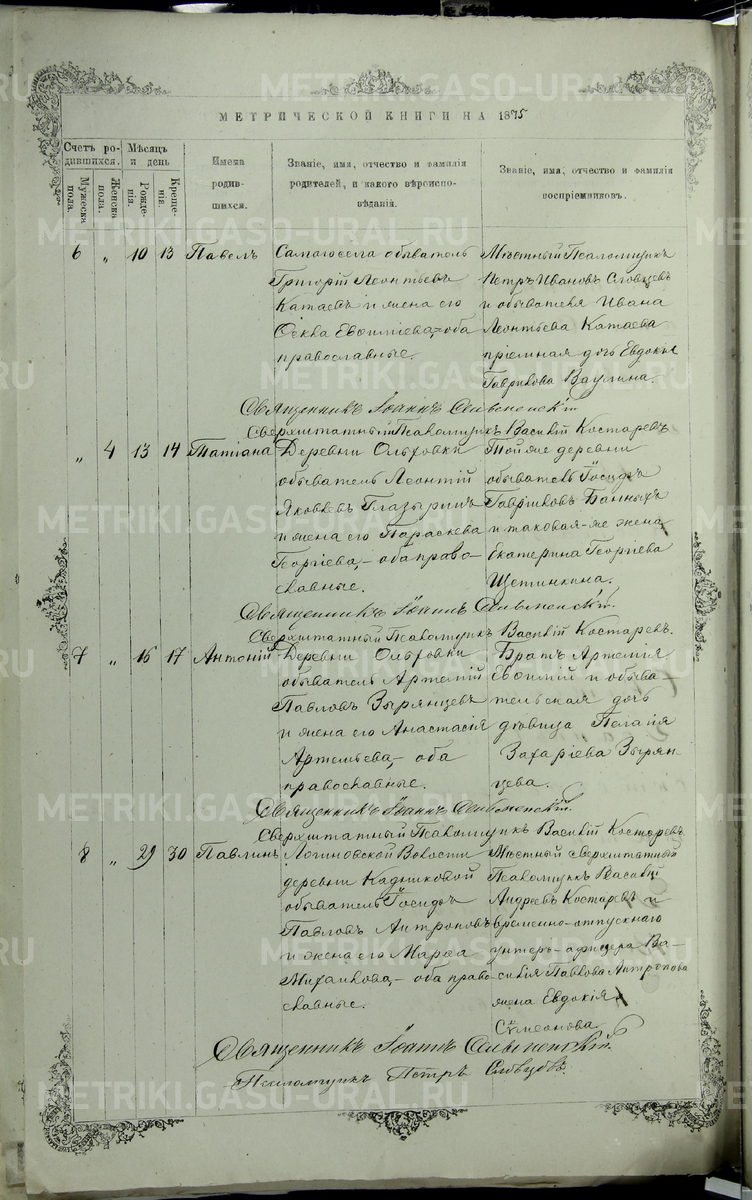 МЕТРИЧЕСКОЙ КНИГИ НА 1875
Счетъ родившихся.
Мужеска пола.
Женска пола.
Мѣсяцъ и день
Рожденія.
Крещенія.
Имена родившихся.
Званіе, имя, отчество и фамилія родителей, и какого вѣроисповѣданія.
Званіе, имя, отчество и фамилія воспріемниковъ.
6 „ 10 13 Павелъ
обыватель
Григорій Леонтьевъ
Катаевъ и жена его
Ѳекла Евѳиміева, оба
православные.
Мѣстный Псаломщикъ
Петръ Ивановъ Словцевъ
и обывателя Ивана
Леонтьева Катаева
пріемная дочь Евдокія
Гаврилова Ваулина.
Священникъ Іоаннъ
Сверхштатный Псаломщикъ Василій Костаревъ
„ 4 13 14 Татіана
Деревни Ольховки
обыватель Леонтій
Яковлевъ Глазыринъ
и жена его Параскева
Георгіева, – оба право-
славные.
Той же деревни
обыватель Іосифъ
Гавриловъ Банныхъ
и таковая-же жена
Екатерина Георгіева
Щетинкина.
Священникъ Іоаннъ
Сверхштатный Псаломщикъ Василій Костаревъ.
7 „ 16 17 Антоній
Деревни Ольховки
обыватель Артемій
Павловъ Зырянцевъ
и жена его Анастасія
Артемьева, – оба
православные.
Братъ Артемія
Евѳимій и обыва-
тельская дочь
дѣвица Пелагія
Захаріева Зырян-
цева.
Священникъ Іоаннъ
Сверхштатный Псаломщикъ Василій Костаревъ
8 „ 29 30 Павлинъ
Логиновской Волости
деревни Кадниковой
обыватель Іосифъ
Павловъ Антроповъ
и жена его Марѳа
Михаилова, – оба право-
славные.
Мѣстный сверхштатный
Псаломщикъ Василій
Андреевъ Костаревъ и
временно-отпускнаго
унтеръ-офицера Ва-
силія Павлова Антропова
жена Евдокія
Симеонова
Священникъ Іоаннъ
Псаломщикъ Петръ Словцовъ.
METRIKI.GASO-URAL.RU